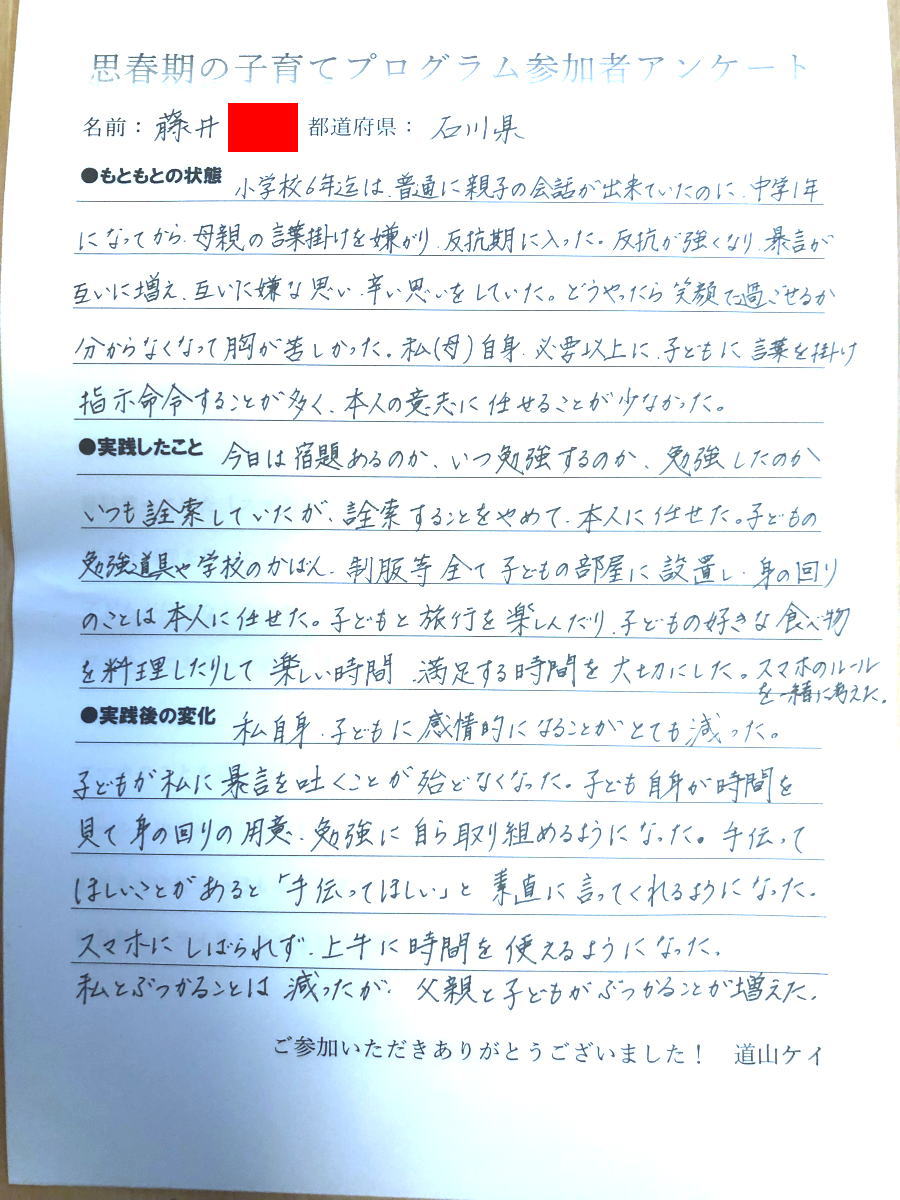 思春期の子育てプログラム参加者アンケート
名前： 藤井 都道府県： 石川県
●もともとの状態 小学校6年迄は、普通に親子の会話が出来ていたのに、中学1年
になってから、母親の言葉掛けを嫌がり、反抗期に入った。反抗が強くなり、暴言が
互いに増え、互いに嫌な思い、辛い思いをしていた。どうやったら笑顔で過ごせるか
分からなくなって胸が苦しかった。私(母)自身、必要以上に、子どもに言葉を掛け
指示命令することが多く、本人の意志に任せることが少なかった。
●実践したこと 今日は宿題あるのか、いつ勉強するのか、勉強したのか
いつも詮索していたが、詮索することをやめて、本人に任せた。子どもの
勉強道具や学校のかばん、制服等全て子どもの部屋に設置し、身の回り
のことは本人に任せた。子どもと旅行を楽しんだり、子どもの好きな食べ物
を料理したりして楽しい時間、満足する時間を大切にした。スマホのルール
を一緒に考えた。
●実践後の変化 私自身、子どもに感情的になることがとても減った。
子どもが私に暴言を吐くことが殆どなくなった。子ども自身が時間を
見て身の回りの用意、勉強に自ら取り組めるようになった。手伝って
ほしいことがあると「手伝ってほしい」と素直に言ってくれるようになった。
スマホにしばられず、上手に時間を使えるようになった。
私とぶつかることは減ったが、父親と子どもがぶつかることが増えた。
ご参加いただきありがとうございました！ 道山ケイ